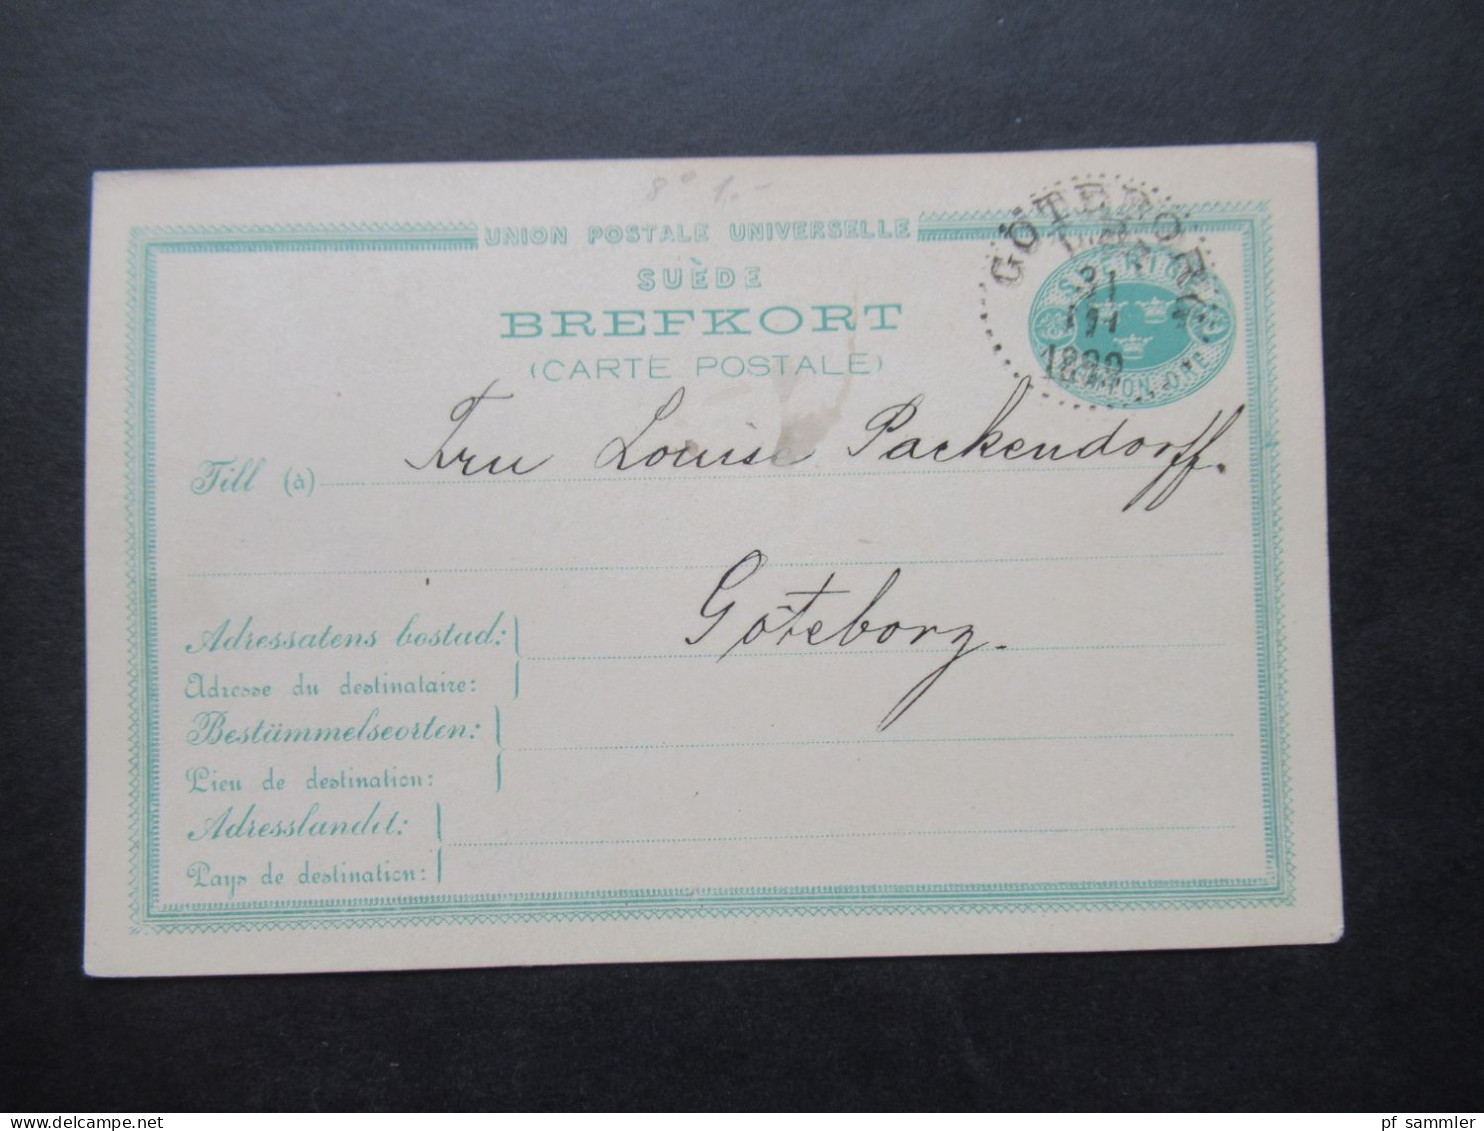 8° 1,-
UNION POSTALE UNIVERSELLE
SUÈDE
BREFKORT
(CARTE POSTALE)
GÖTEBORG
1889
SVERIGE
Till (à) Fru Louise Packendorff.
Göteborg.
Adressatens bostad:
Adresse du destinataire:
Bestämmelseorten:
Lieu de destination:
Adresslandet:
Pays de destination:
pf sammler